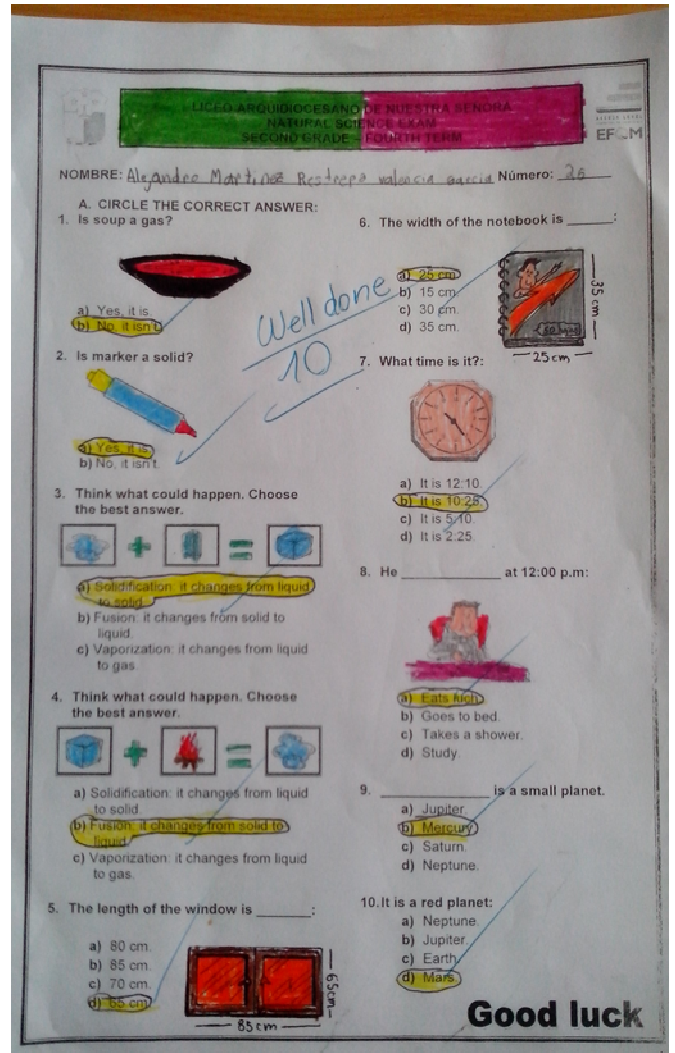 LICEO ARQUIDIOCESANO DE NUESTRA SEÑORA
NATURAL SCIENCE EXAM
SECOND GRADE – FOURTH TERM
NOMBRE: Alejandro Martinez Restrepo valencia garcia Número: 26
A. CIRCLE THE CORRECT ANSWER:
1. Is soup a gas?
a) Yes, it is.
b) No, it isn't.
2. Is marker a solid?
a) Yes, it is.
b) No, it isn't.
3. Think what could happen. Choose
the best answer.
a) Solidification: it changes from liquid
to solid.
b) Fusion: it changes from solid to
liquid.
c) Vaporization: it changes from liquid
to gas.
4. Think what could happen. Choose
the best answer.
a) Solidification: it changes from liquid
to solid.
b) Fusion: it changes from solid to
liquid.
c) Vaporization: it changes from liquid
to gas.
5. The length of the window is ______:
a) 80 cm.
b) 85 cm.
c) 70 cm.
d) 65 cm.
65cm
85cm
Well done
10
6. The width of the notebook is ______:
a) 25 cm.
b) 15 cm.
c) 30 cm.
d) 35 cm.
35cm
25cm
7. What time is it?:
a) It is 12:10.
b) It is 10:25.
c) It is 5:10.
d) It is 2:25.
8. He ____________ at 12:00 p.m:
a) Eats
b) Goes to bed.
c) Takes a shower.
d) Study.
9. ____________ is a small planet.
a) Jupiter.
b) Mercury.
c) Saturn.
d) Neptune.
10. It is a red planet:
a) Neptune.
b) Jupiter.
c) Earth.
d) Mars.
Good luck